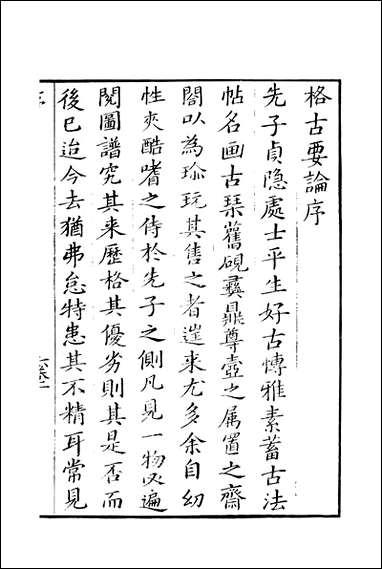 格古要論序
先子貞隱處士平生好古愽雅素蓄古法
帖名画古琹舊硯彞鼎尊壺之属置之齋
閣以為珎玩其售之者遝来尤多余自幼
性夾酷嗜之侍於先子之側凡見一物必遍
閱圖譜究其来歷格其優劣別其是否而
後已迨今去猶弗怠特患其不精耳常見